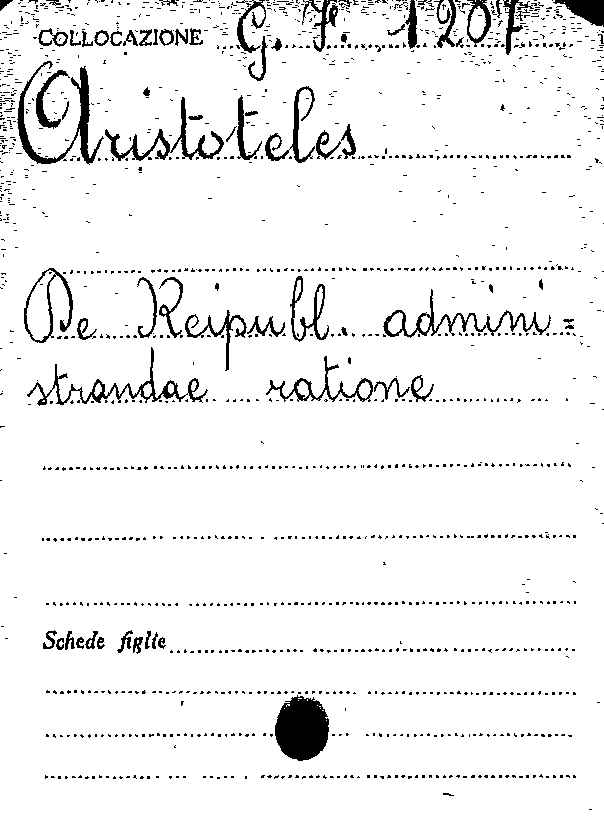 COLLOCAZIONE G. F. 1207
Aristoteles
De Reipubl. admini=
strandae ratione
Schede figlie